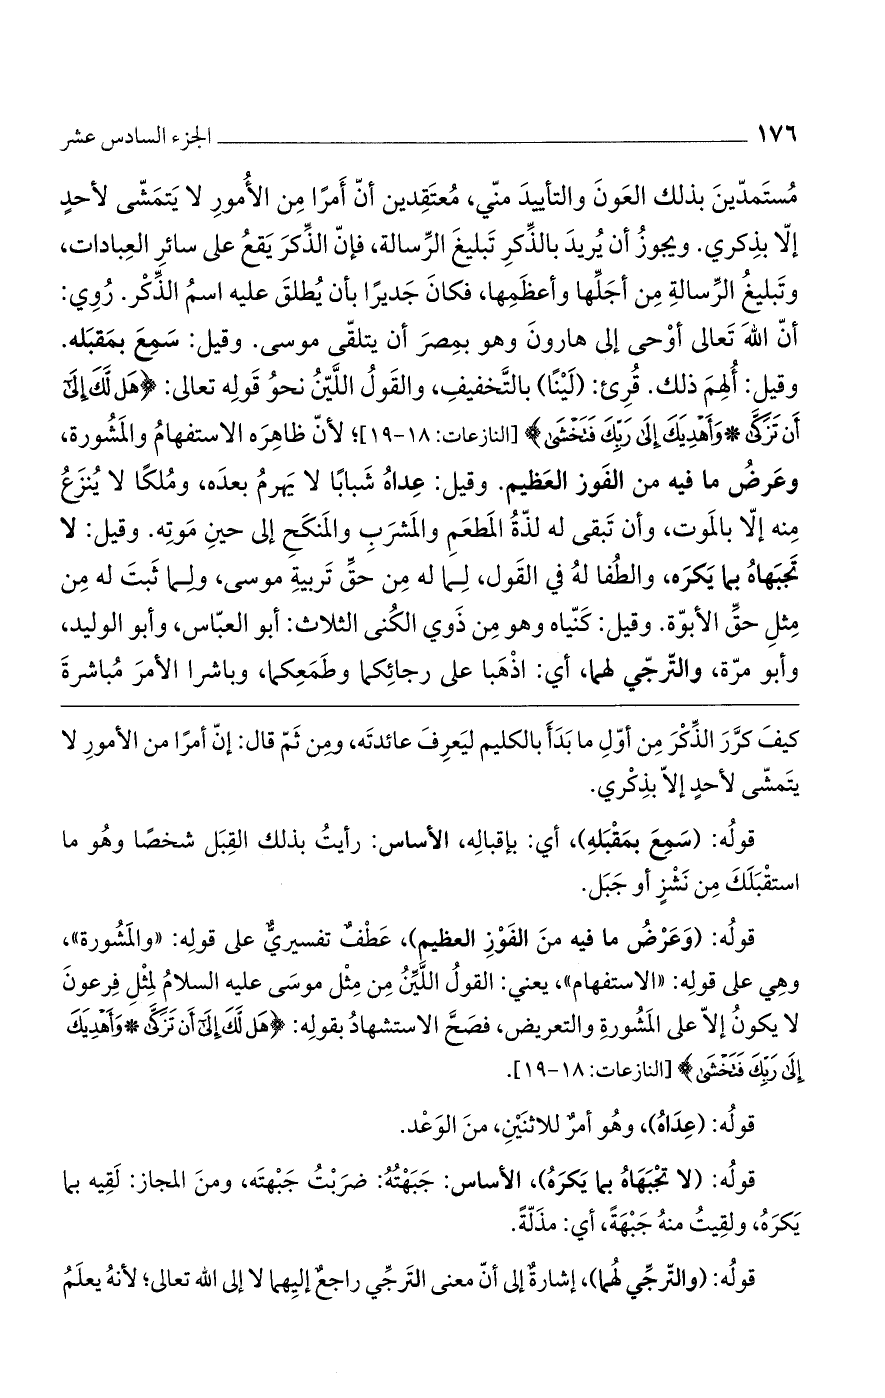 ١٧٦ ــــــــــــــــــــ الجزء السادس عشر
مُستَمدّينَ بذلك العَونَ والتأييدَ منّي، مُعتَقِدين أنّ أَمرًا مِن الأُمورِ لا يَتمَشّى لأحدٍ
إلّا بذِكري. ويجوزُ أن يُريدَ بالذِّكرِ تَبليغَ الرِّسالة، فإنّ الذِّكرَ يَقعُ على سائرِ العِبادات،
وتَبليغُ الرِّسالةِ مِن أجَلِّها وأعظَمِها، فكانَ جَديرًا بأن يُطلقَ عليه اسمُ الذِّكْر. رُوِي:
أنّ اللهَ تَعالى أوْحى إلى هارونَ وهو بمِصرَ أن يتلقّى موسى. وقيل: سَمِعَ بمَقبَله.
وقيل: أُلهِمَ ذلك. قُرِئ: (لَيْنًا) بالتَّخفيفِ، والقَولُ اللَّيِّنُ نحوُ قَولِه تعالى: ﴿هَل لَّكَ إِلَىٰٓ
أَن تَزَكَّىٰ * وَأَهْدِيَكَ إِلَىٰ رَبِّكَ فَتَخْشَىٰ﴾ [النازعات: ١٨-١٩]؛ لأنّ ظاهِرَه الاستفهامُ والمَشُورة،
وعَرضُ ما فيه من الفَوز العَظيم. وقيل: عِداهُ شَبابًا لا يَهرمُ بعدَه، ومُلكًا لا يُنزَعُ
مِنه إلّا بالمَوت، وأن تَبقى له لذّةُ المَطعَمِ والمشرَبِ والمَنكَحِ إلى حينِ مَوتِه. وقيل: لا
تَجبَهاهُ بما يَكرَه، والطُفا لهُ في القَول، لِما له مِن حقِّ تَربيةِ موسى، ولِما ثَبتَ له مِن
مِثلِ حقِّ الأبوّة. وقيل: كَنّياه وهو مِن ذَوي الكُنى الثلاث: أبو العبّاس، وأبو الوليد،
وأبو مرّة، والتّرجّي لهما، أي: اذْهَبا على رجائِكما وطَمَعِكما، وباشرا الأمرَ مُباشرةَ
كيفَ كرَّرَ الذِّكْرَ مِن أوّلِ ما بَدَأَ بالكليم ليَعرِفَ عائدتَه، ومِن ثَمّ قال: إنّ أمرًا من الأمورِ لا
يتَمشّى لأحدٍ إلاّ بذِكْري.
قولُه: (سَمِعَ بمَقْبَلهِ)، أي: بإقبالِه، الأساس: رأيتُ بذلك القِبَل شخصًا وهُو ما
استقْبَلَكَ مِن نَشْزٍ أو جَبَل.
قولُه: (وَعَرْضُ ما فيه منَ الفَوْزِ العظيم)، عَطْفٌ تفسيريٌّ على قولِه: «والمَشُورة»،
وهِي على قولِه: «الاستفهام»، يعني: القولُ اللَّيِّنُ مِن مِثْلِ موسَى عليه السلامُ لمِثْلِ فِرعونَ
لا يكونُ إلاّ على المَشُورةِ والتعريض، فصَحَّ الاستشهادُ بقولِه: ﴿هَل لَّكَ إِلَىٰٓ أَن تَزَكَّىٰ * وَأَهْدِيَكَ
إِلَىٰ رَبِّكَ فَتَخْشَىٰ﴾ [النازعات: ١٨-١٩].
قولُه: (عِدَاهُ)، وهُو أمرٌ للاثنَيْنِ، منَ الوَعْد.
قولُه: (لا تَجْبَهَاهُ بما يَكرَهُ)، الأساس: جَبَهْتُهُ: ضرَبْتُ جَبْهتَه، ومنَ المجاز: لَقِيه بما
يَكرَهُ، ولقِيتُ منهُ جَبْهَةً، أي: مذَلّةً.
قولُه: (والتَّرجِّي لهُما)، إشارةٌ إلى أنّ معنى الترَجِّي راجعٌ إليهِما لا إلى الله تعالى؛ لأنهُ يعلَمُ